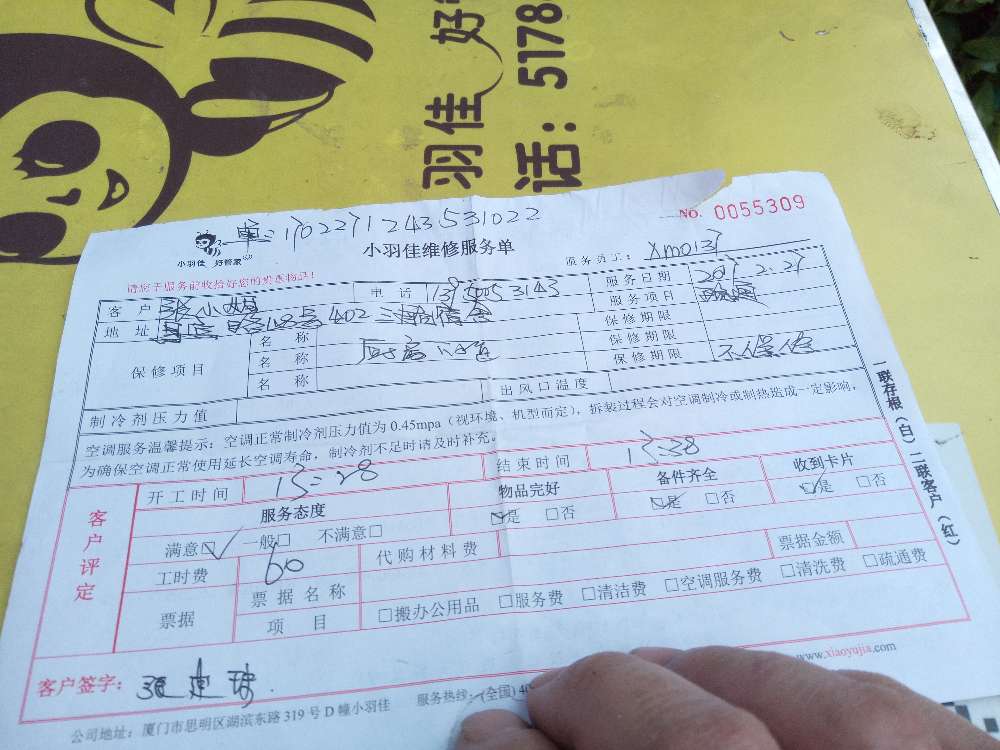 好管
羽佳
话: 5178
单: 1702271243531022
NO. 0055309
小羽佳 好管家
小羽佳维修服务单
服务员工: Xm0137
请您于服务前收拾好您的贵重物品!
客户 张小姐 电话 服务日期 2017.2.27
地址 402 服务项目
保修项目 名称 保修期限
名称 厨房 保修期限
名称 保修期限 不保修
制冷剂压力值 出风口温度
空调服务温馨提示: 空调正常制冷剂压力值为 0.45mpa (视环境、机型而定), 拆装过程会对空调制冷或制热造成一定影响,
为确保空调正常使用延长空调寿命, 制冷剂不足时请及时补充。
开工时间 13:28 结束时间 13:38
客户评定
服务态度 物品完好 备件齐全 收到卡片
满意☑ 一般□ 不满意□ ☑是 □否 ☑是 □否 ☑是 □否
工时费 60 代购材料费 票据金额
票据 票据名称
项目 □搬办公用品 □服务费 □清洁费 □空调服务费 □清洗费 □疏通费
一联存根(白) 二联客户(红)
客户签字: 张
www.xiaoyujia.com
公司地址: 厦门市思明区湖滨东路 319 号 D 幢小羽佳 服务热线: (全国) 40